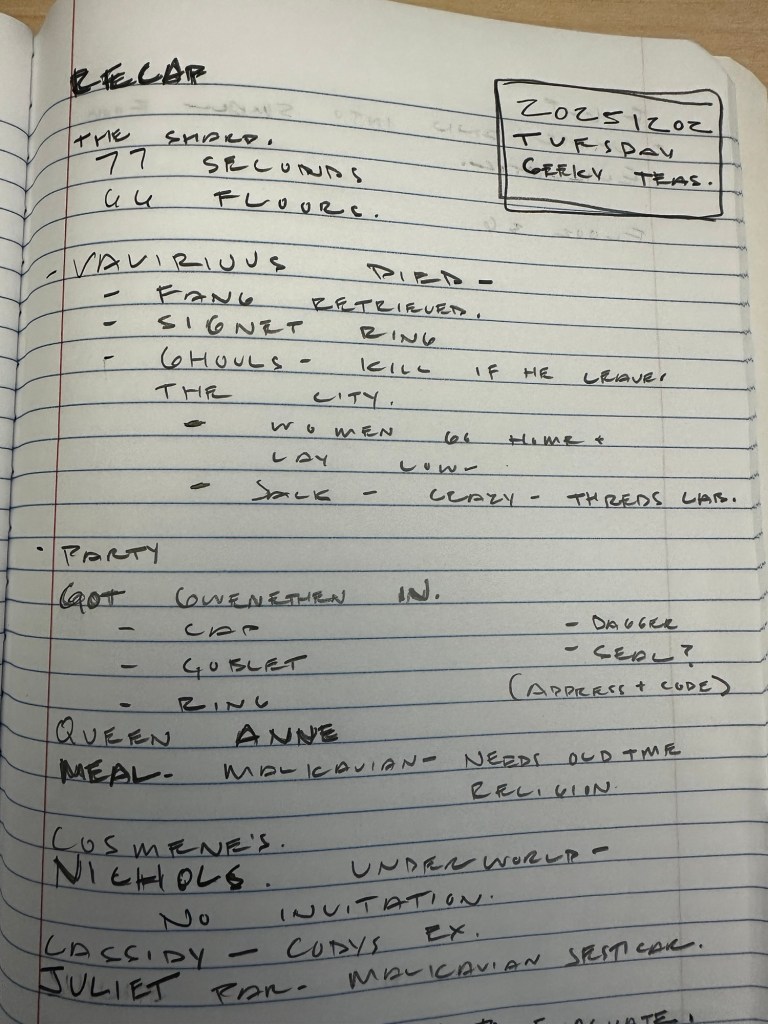 RECAP
20251202
TUESDAY
GEEKY TEAS.
THE SHARD.
77 SECONDS
44 FLOORS.
- VAVIRIUUS DIED -
- FANG RETRIEVED.
- SIGNET RING
- GHOULS - KILL IF HE LEAVES
THE CITY.
- WOMEN GO HOME +
LAY LOW -
- JACK - CRAZY - THREDS LAB.
· PARTY
GOT GWENETHEN IN.
- CAP
- GOBLET
- RING
- DAGGER
- SEAL?
(ADDRESS + CODE)
QUEEN ANNE
MEAL - MALICAVIAN - NEEDS OLD TME
RELIGION.
COSMENE'S.
NICHOLS. UNDERWORLD -
NO INVITATION.
CASSIDY - CODYS EX.
JULIET PAR - MALICAVIAN